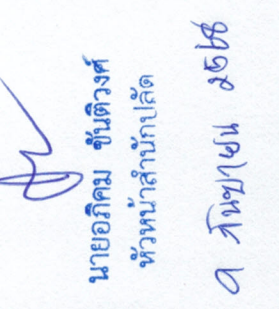 นายอภิคม ขันติวงศ์
หัวหน้าสำนักปลัด
๑ กันยายน ๒๕๖๘